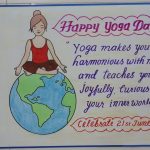 Happy Yoga Da
"Yoga makes you
harmonious with
and teaches you
Joyfully Curious
your inner world
Celebrate 21st June